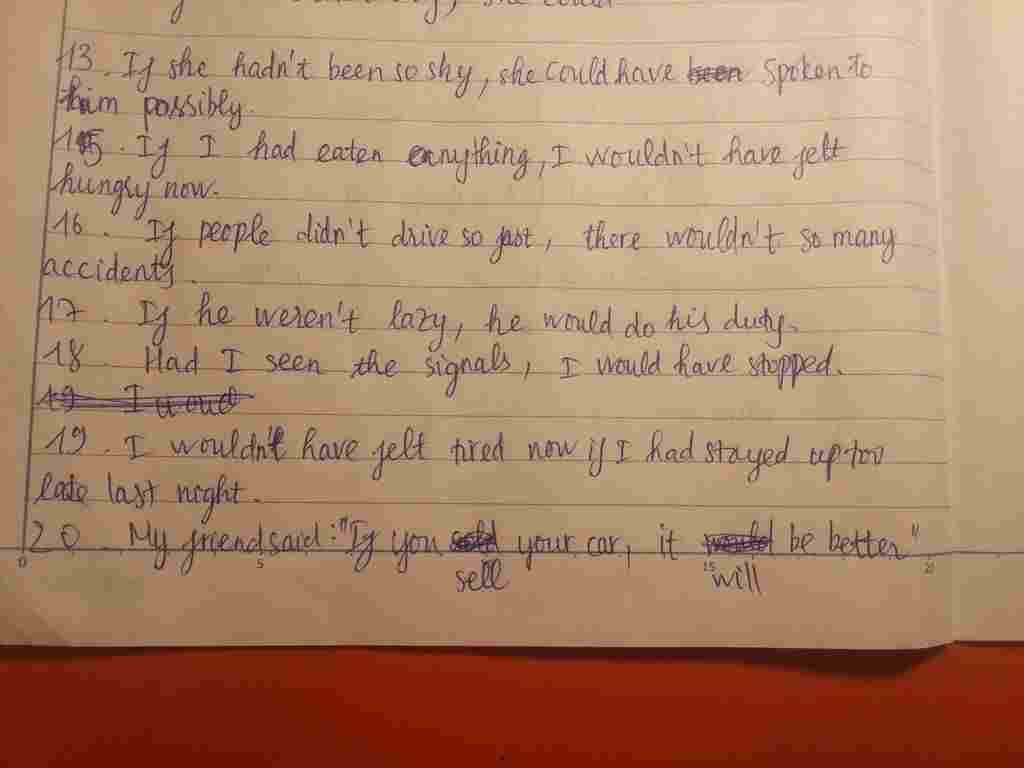 she could
13. If she hadn't been so shy, she could have been spoken to
him possibly.
15. If I had eaten anything, I wouldn't have felt
hungry now.
16. If people didn't drive so fast, there wouldn't so many
accidents.
17. If he weren't lazy, he would do his duty.
18 Had I seen the signals, I would have stopped.
19 I
19. I wouldn't have felt tired now if I had stayed up too
late last night.
20. My friend said: "If you sold your car, it would be better"
sell will
0 5 15